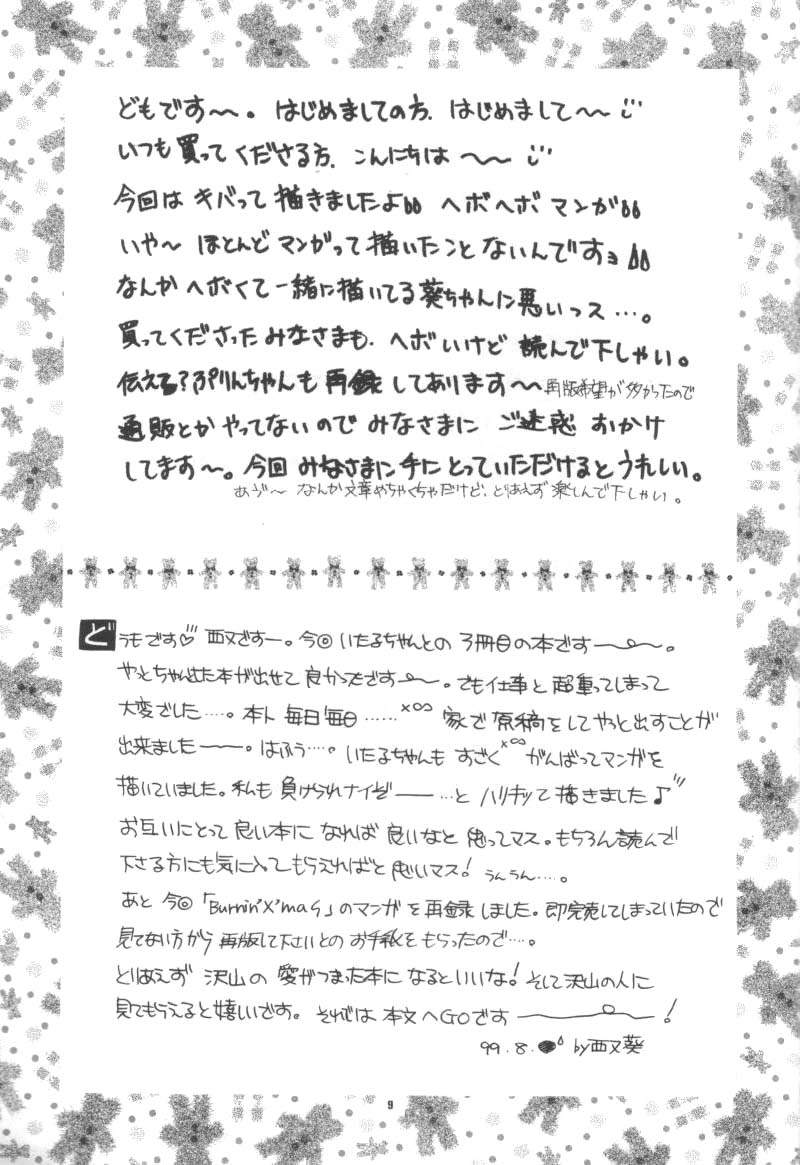 どもです〜〜。はじめましての方、はじめまして〜〜
いつも買ってくださる方、こんにちは〜〜
今回はキバって描きましたよ ヘボヘボマンガ
いや〜ほとんどマンガって描いたことないんですョ
なんかヘボくて一緒に描いてる葵ちゃんに悪いっス…。
買ってくださったみなさまも、ヘボいけど読んで下しゃい。
伝える?ぷりんちゃんも再録してあります〜再版希望が多かったので
通販とかやってないのでみなさまにご迷惑おかけ
してます〜。今回みなさまに手にとっていただけるとうれしい。
あう゛〜なんか文章めちゃくちゃだけど、とりあえず楽しんで下しゃい。
どうもです♡西又ですー。今回いたるちゃんとの3冊目の本です――。
やっとちゃんと出た本が出せて良かったです――。でも仕事と超重ってしまって
大変でした….。本ト毎日毎日……×∞ 家で原稿をしてやっと出すことが
出来ました――。はふぅ….。いたるちゃんもすごく×∞がんばってマンガを
描いていました。私も負けられナイぞ――…とハリキッて描きました♪
お互いにとって良い本になれば良いなと思ってマス。もちろん読んで
下さる方にも気に入ってもらえればと思いマス!うんうん….。
あと今回「Burnin'X'mas」のマンガを再録しました。即完売してしまっていたので
見てない方から再版して下さいとのお手紙をもらったので….。
とりあえず沢山の愛がつまった本になるといいな!そして沢山の人に
見てもらえると嬉しいです。それでは本文へGOです――!
99.8. by西又葵
9